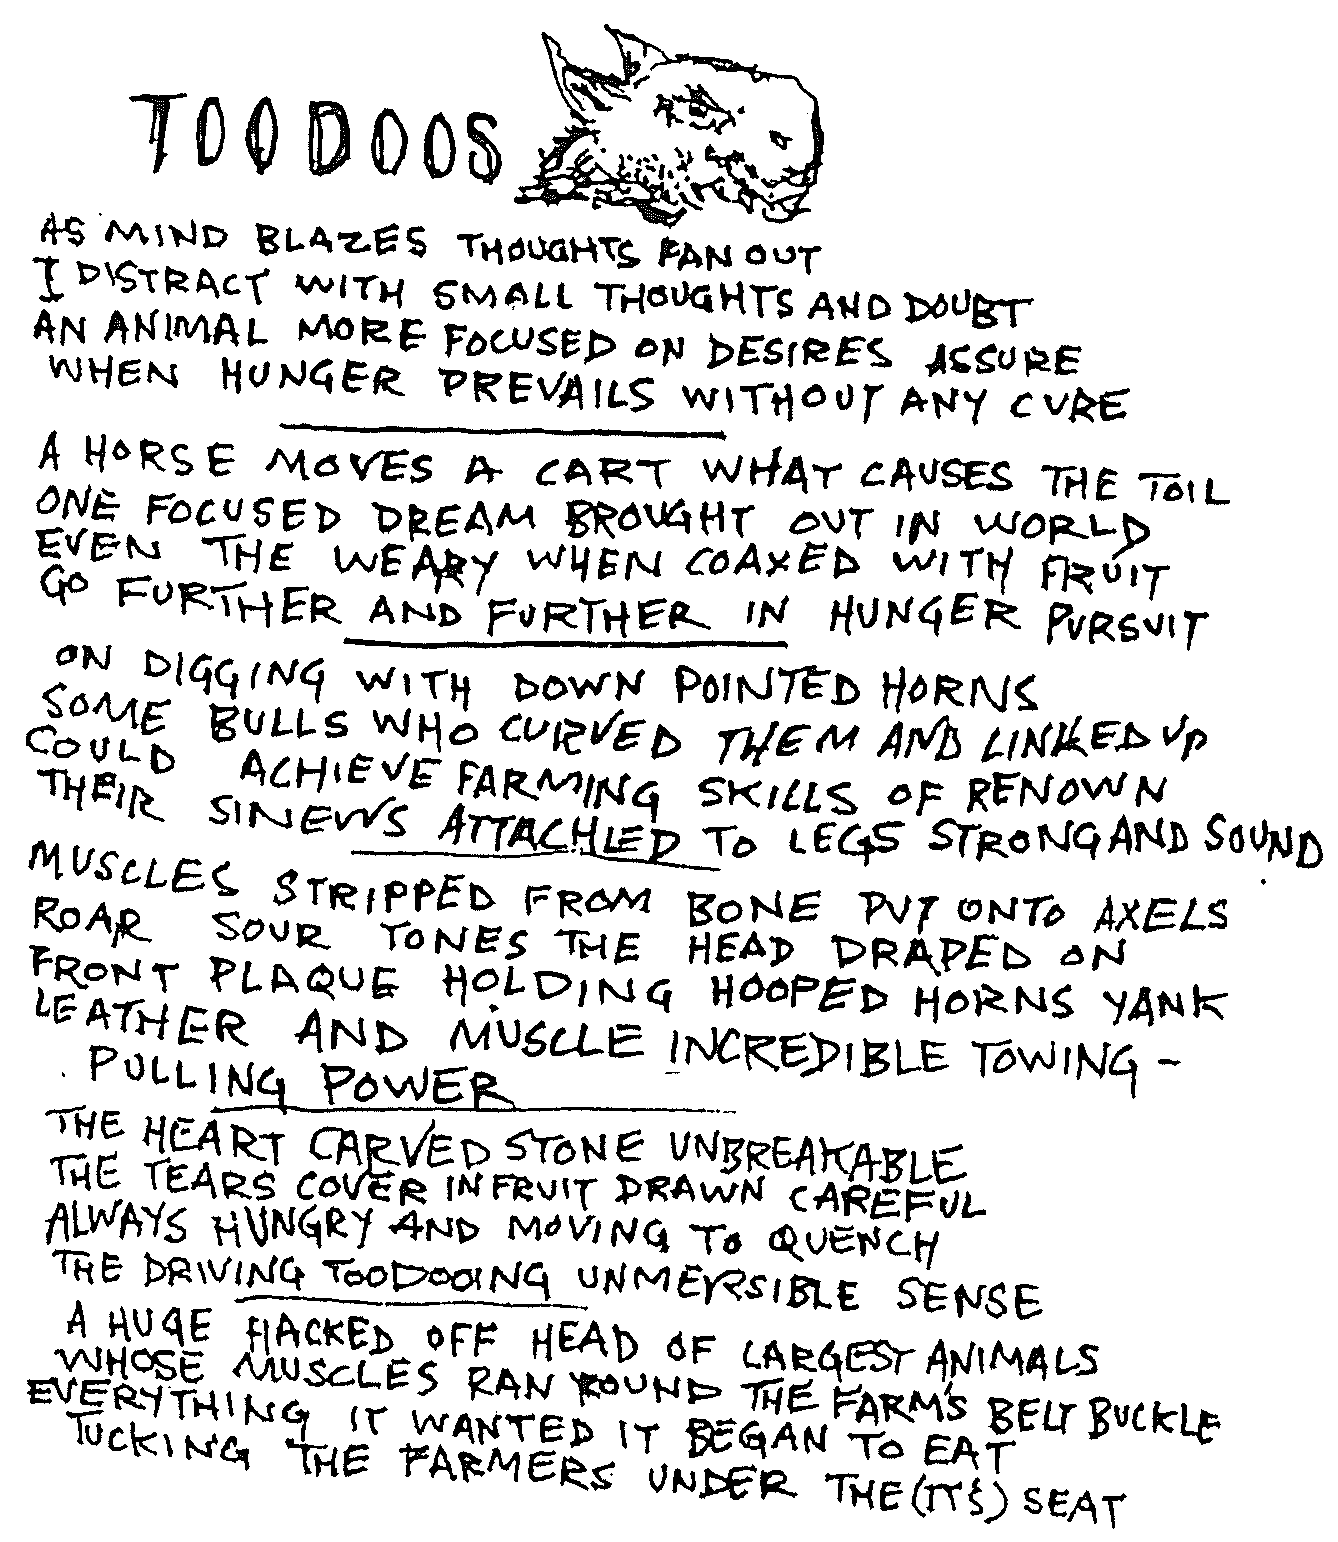 TOODOOS
AS MIND BLAZES THOUGHTS FAN OUT
I DISTRACT WITH SMALL THOUGHTS AND DOUBT
AN ANIMAL MORE FOCUSED ON DESIRES ASSURE
WHEN HUNGER PREVAILS WITHOUT ANY CURE
A HORSE MOVES A CART WHAT CAUSES THE TOIL
ONE FOCUSED DREAM BROUGHT OUT IN WORLD
EVEN THE WEARY WHEN COAXED WITH FRUIT
GO FURTHER AND FURTHER IN HUNGER PURSUIT
ON DIGGING WITH DOWN POINTED HORNS
SOME BULLS WHO CURVED THEM AND LINKED UP
COULD ACHIEVE FARMING SKILLS OF RENOWN
THEIR SINEWS ATTACHLED TO LEGS STRONG AND SOUND
MUSCLES STRIPPED FROM BONE PUT ONTO AXELS
ROAR SOUR TONES THE HEAD DRAPED ON
FRONT PLAQUE HOLDING HOOPED HORNS YANK
LEATHER AND MUSCLE INCREDIBLE TOWING -
PULLING POWER
THE HEART CARVED STONE UNBREAKABLE
THE TEARS COVER IN FRUIT DRAWN CAREFUL
ALWAYS HUNGRY AND MOVING TO QUENCH
THE DRIVING TOODOOING UNMERSIBLE SENSE
A HUGE HACKED OFF HEAD OF LARGEST ANIMALS
WHOSE MUSCLES RAN ROUND THE FARM'S BELT BUCKLE
EVERYTHING IT WANTED IT BEGAN TO EAT
TUCKING THE FARMERS UNDER THE (ITS) SEAT